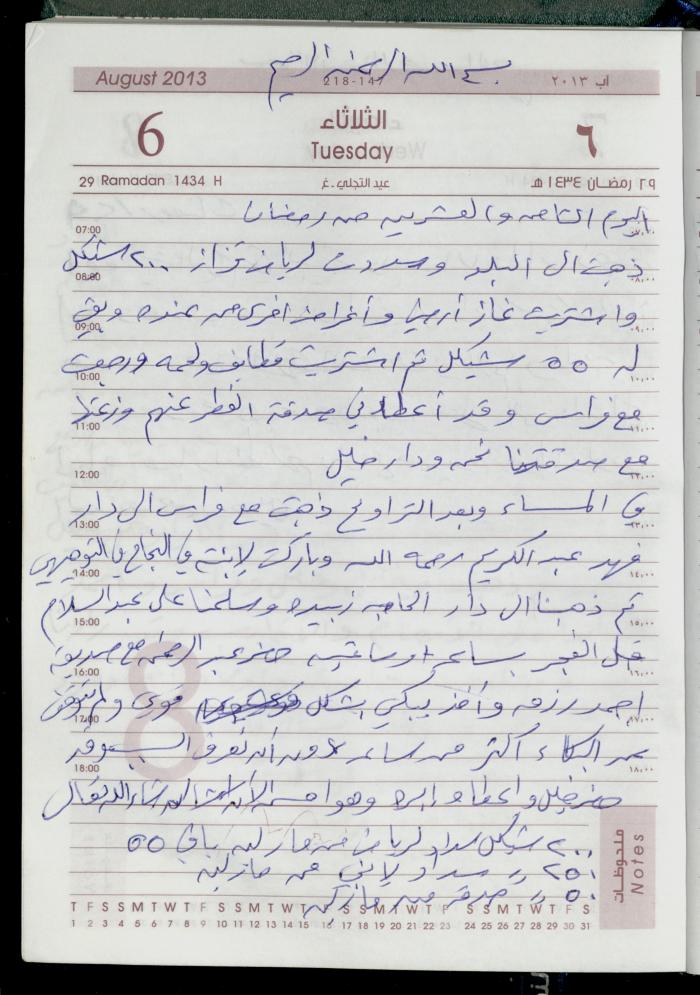 بسم الله الرحمن الرحيم
August 2013 218-147 آب ٢٠١٣
6 الثلاثاء ٦
Tuesday
29 Ramadan 1434 H عيد التجلي.غ ٢٩ رمضان ١٤٣٤ هـ
اليوم الثامن والعشرين من رمضان
07:00 ٠٧,٠٠
ذهبت الى البلد وسددت لرياض قزاز ٢٠٠ شيكل
08:00 ٠٨,٠٠
واشتريت غاز أرضي وأغراض اخرى من عنده وبقي
09:00 ٠٩,٠٠
له ٥٥ شيكل ثم اشتريت قطايف ولحمه ورجعت
10:00 ١٠,٠٠
مع فراس وقد أعطاني صدقة الفطر عنهم وزعتها
11:00 ١١,٠٠
مع صدقتنا نحن ودار خليل
12:00 ١٢,٠٠
في المساء وبعد التراويح ذهبت مع فراس الى دار
13:00 ١٣,٠٠
فهد عبد الكريم رحمه الله وباركت لابنته في النجاح في التوجيهي
14:00 ١٤,٠٠
ثم ذهبنا الى دار الحاجه زبيده وسلمنا على عبد السلام
15:00 ١٥,٠٠
قبل الفجر بساعه او ساعتين حضر عبد الرحمن مع صديقه
16:00 ١٦,٠٠
احمد رزمه وأخذ يبكي بشكل قوي ولم يتوقف
17:00 ١٧,٠٠
عن البكاء أكثر من ساعه دون أن نعرف السبب وقد
18:00 ١٨,٠٠
حضر خليل وأعطاه ابره وهو أحسن الآن ان شاء الله تعالى
٢٠٠ شيكل سداد لرياض من باقي ٥٥
٢٥٠ // سداد لابني من
٥٠ // صدقه
ملحوظات
Notes
T F S S M T W T F S S M T W T F S S M T W T F S S M T W T F S
1 2 3 4 5 6 7 8 9 10 11 12 13 14 15 16 17 18 19 20 21 22 23 24 25 26 27 28 29 30 31